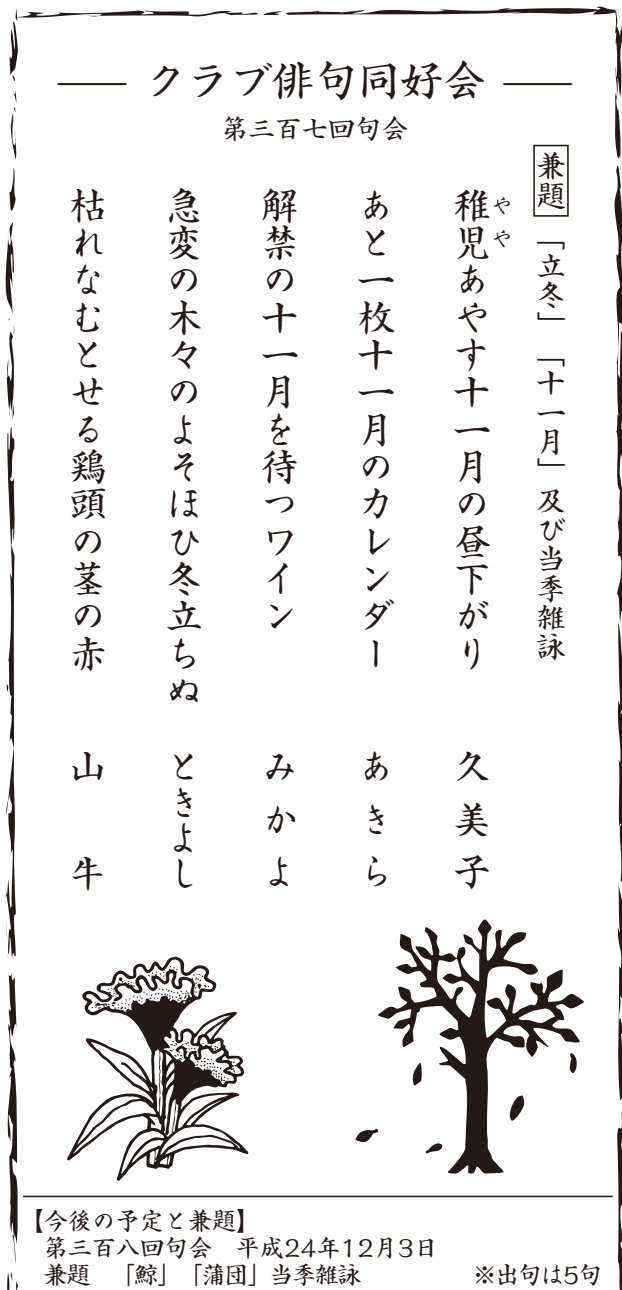 クラブ俳句同好会
第三百七回句会
兼題 「立冬」 「十一月」 及び当季雑詠
稚児あやす十一月の昼下がり 久美子
やや
あと一枚十一月のカレンダー あきら
解禁の十一月を待つワイン みかよ
急変の木々のよそほひ冬立ちぬ ときよし
枯れなむとせる鶏頭の茎の赤 山牛
【今後の予定と兼題】
第三百八回句会 平成24年12月3日
兼題 「鯨」「蒲団」当季雑詠 ※出句は5句